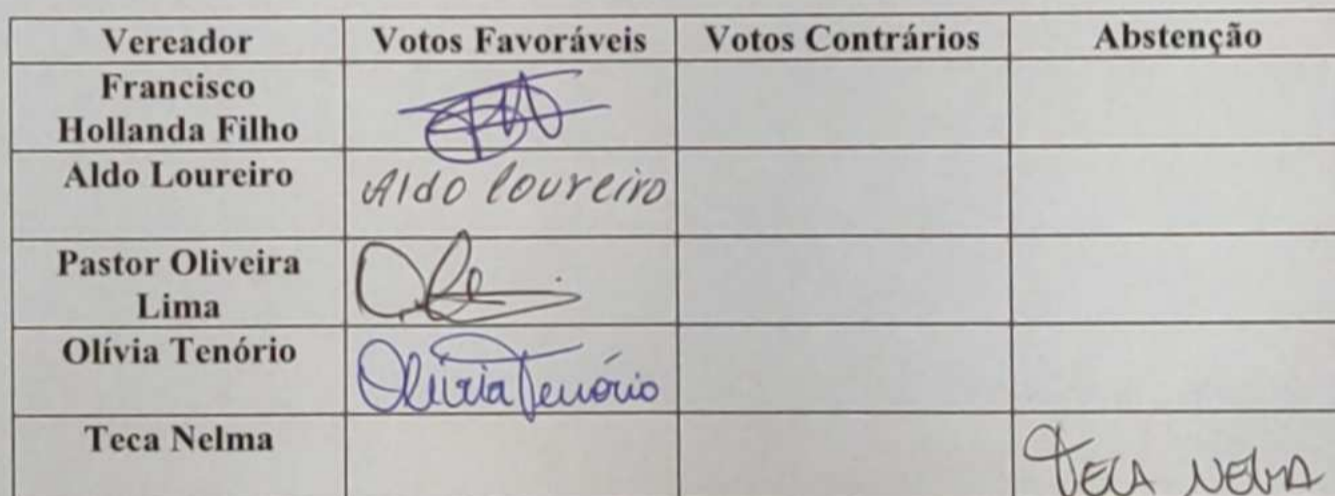 Vereador Votos Favoráveis Votos Contrários Abstenção
Francisco
Hollanda Filho
Aldo Loureiro Aldo loureiro
Pastor Oliveira
Lima
Olívia Tenório Olívia Tenório
Teca Nelma TECA NELMA